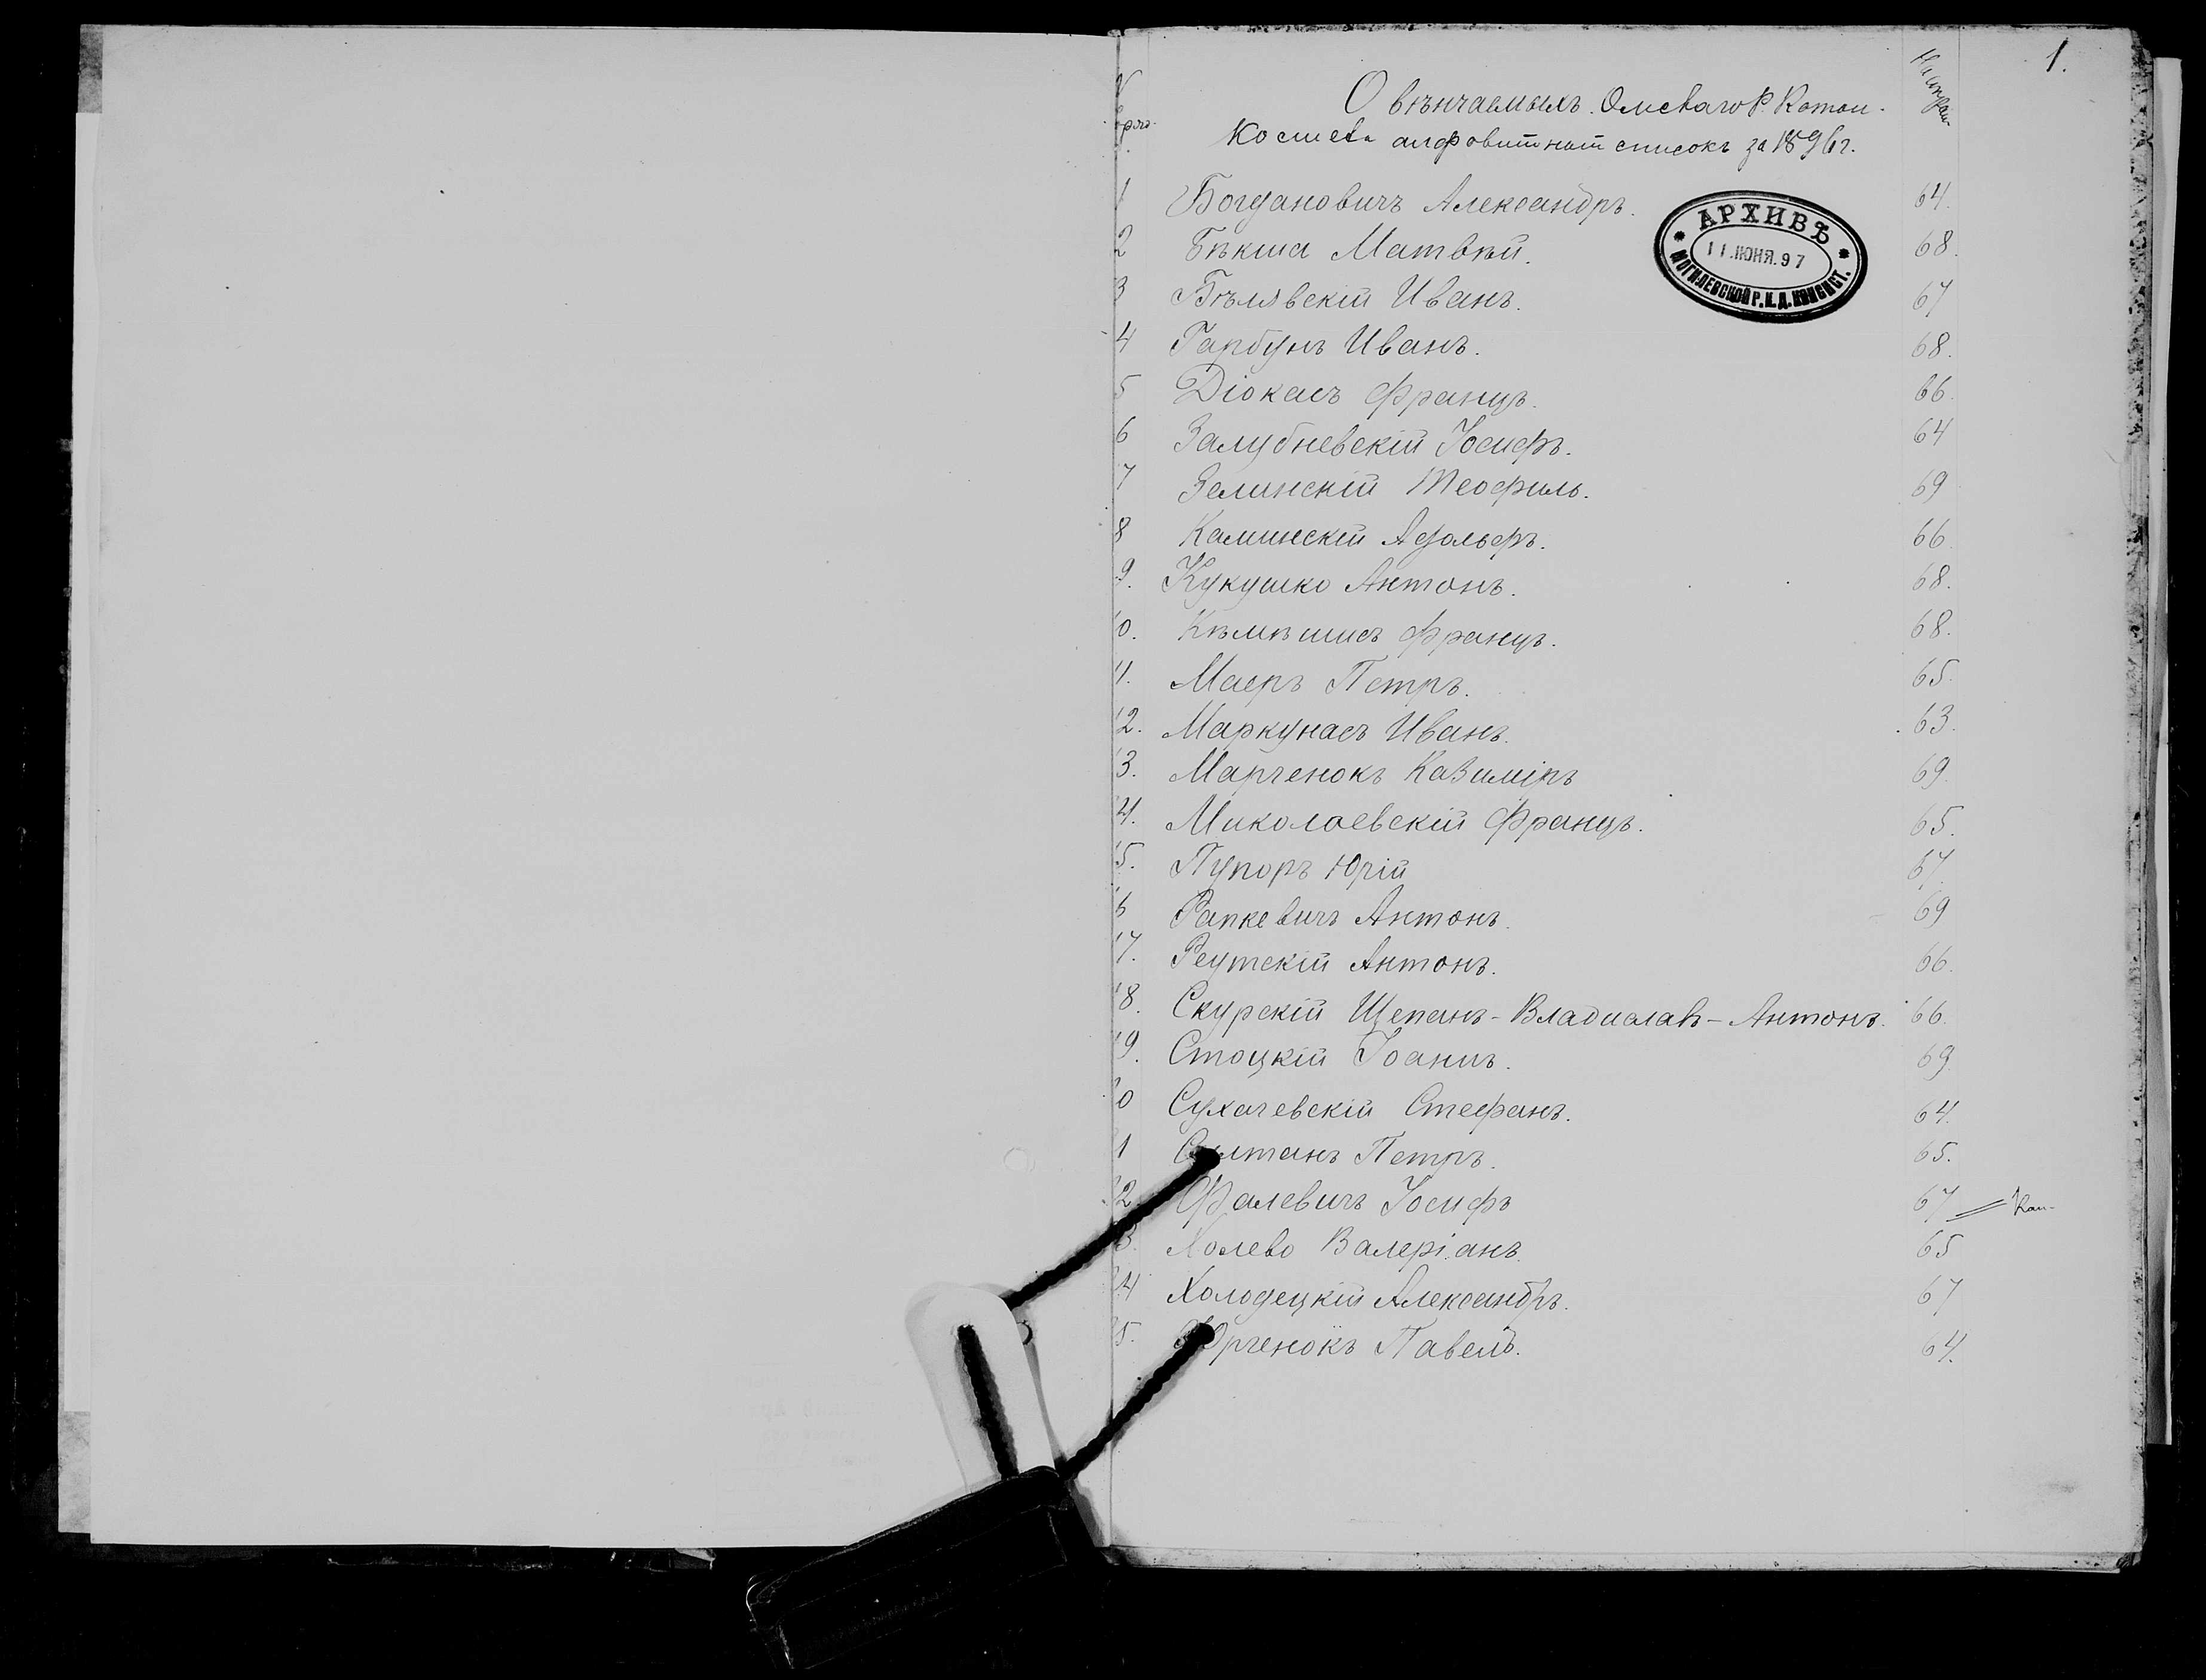 1.
О вѣнчаемыхъ Омскаго Р. Катол.
Костела алфовитный списокъ за 1896 г.
АРХИВЪ
11. ИЮНЯ. 97
МОГИЛЕВСКОЙ Р. К. Д. КОНСИСТ.
1 Богдановичъ Александръ. 64.
2 Бѣкша Матвѣй. 68.
3 Бѣлявскій Иванъ. 67
4 Гарбунъ Иванъ. 68.
5 Діокасъ Францъ. 66.
6 Залубневскій Іосифъ. 64
7 Зелинскій Теофиль. 69
8 Калинскій Адольфъ. 66
9. Кукушко Антонъ. 68.
10. Францъ. 68.
11. Маеръ Петръ. 65.
12. Маркунасъ Иванъ. 63.
13. Марченокъ Казиміръ 69.
14. Миколаевскій Францъ. 65.
15. Пупоръ Юрій 67
16 Рапкевичъ Антонъ. 69
17. Реутскій Антонъ. 66.
18. Скурскій Щепанъ-Владиславъ-Антонъ. 66.
19. Стоцкій Іоаннъ. 69
20 Сухачевскій Стефанъ. 64.
21 Султанъ Петръ. 65.
22 Фалевичъ Іосифъ 67
23. Холево Валеріанъ. 65
24 Холодецкій Александръ. 67
25. Юрченокъ Павелъ. 64.